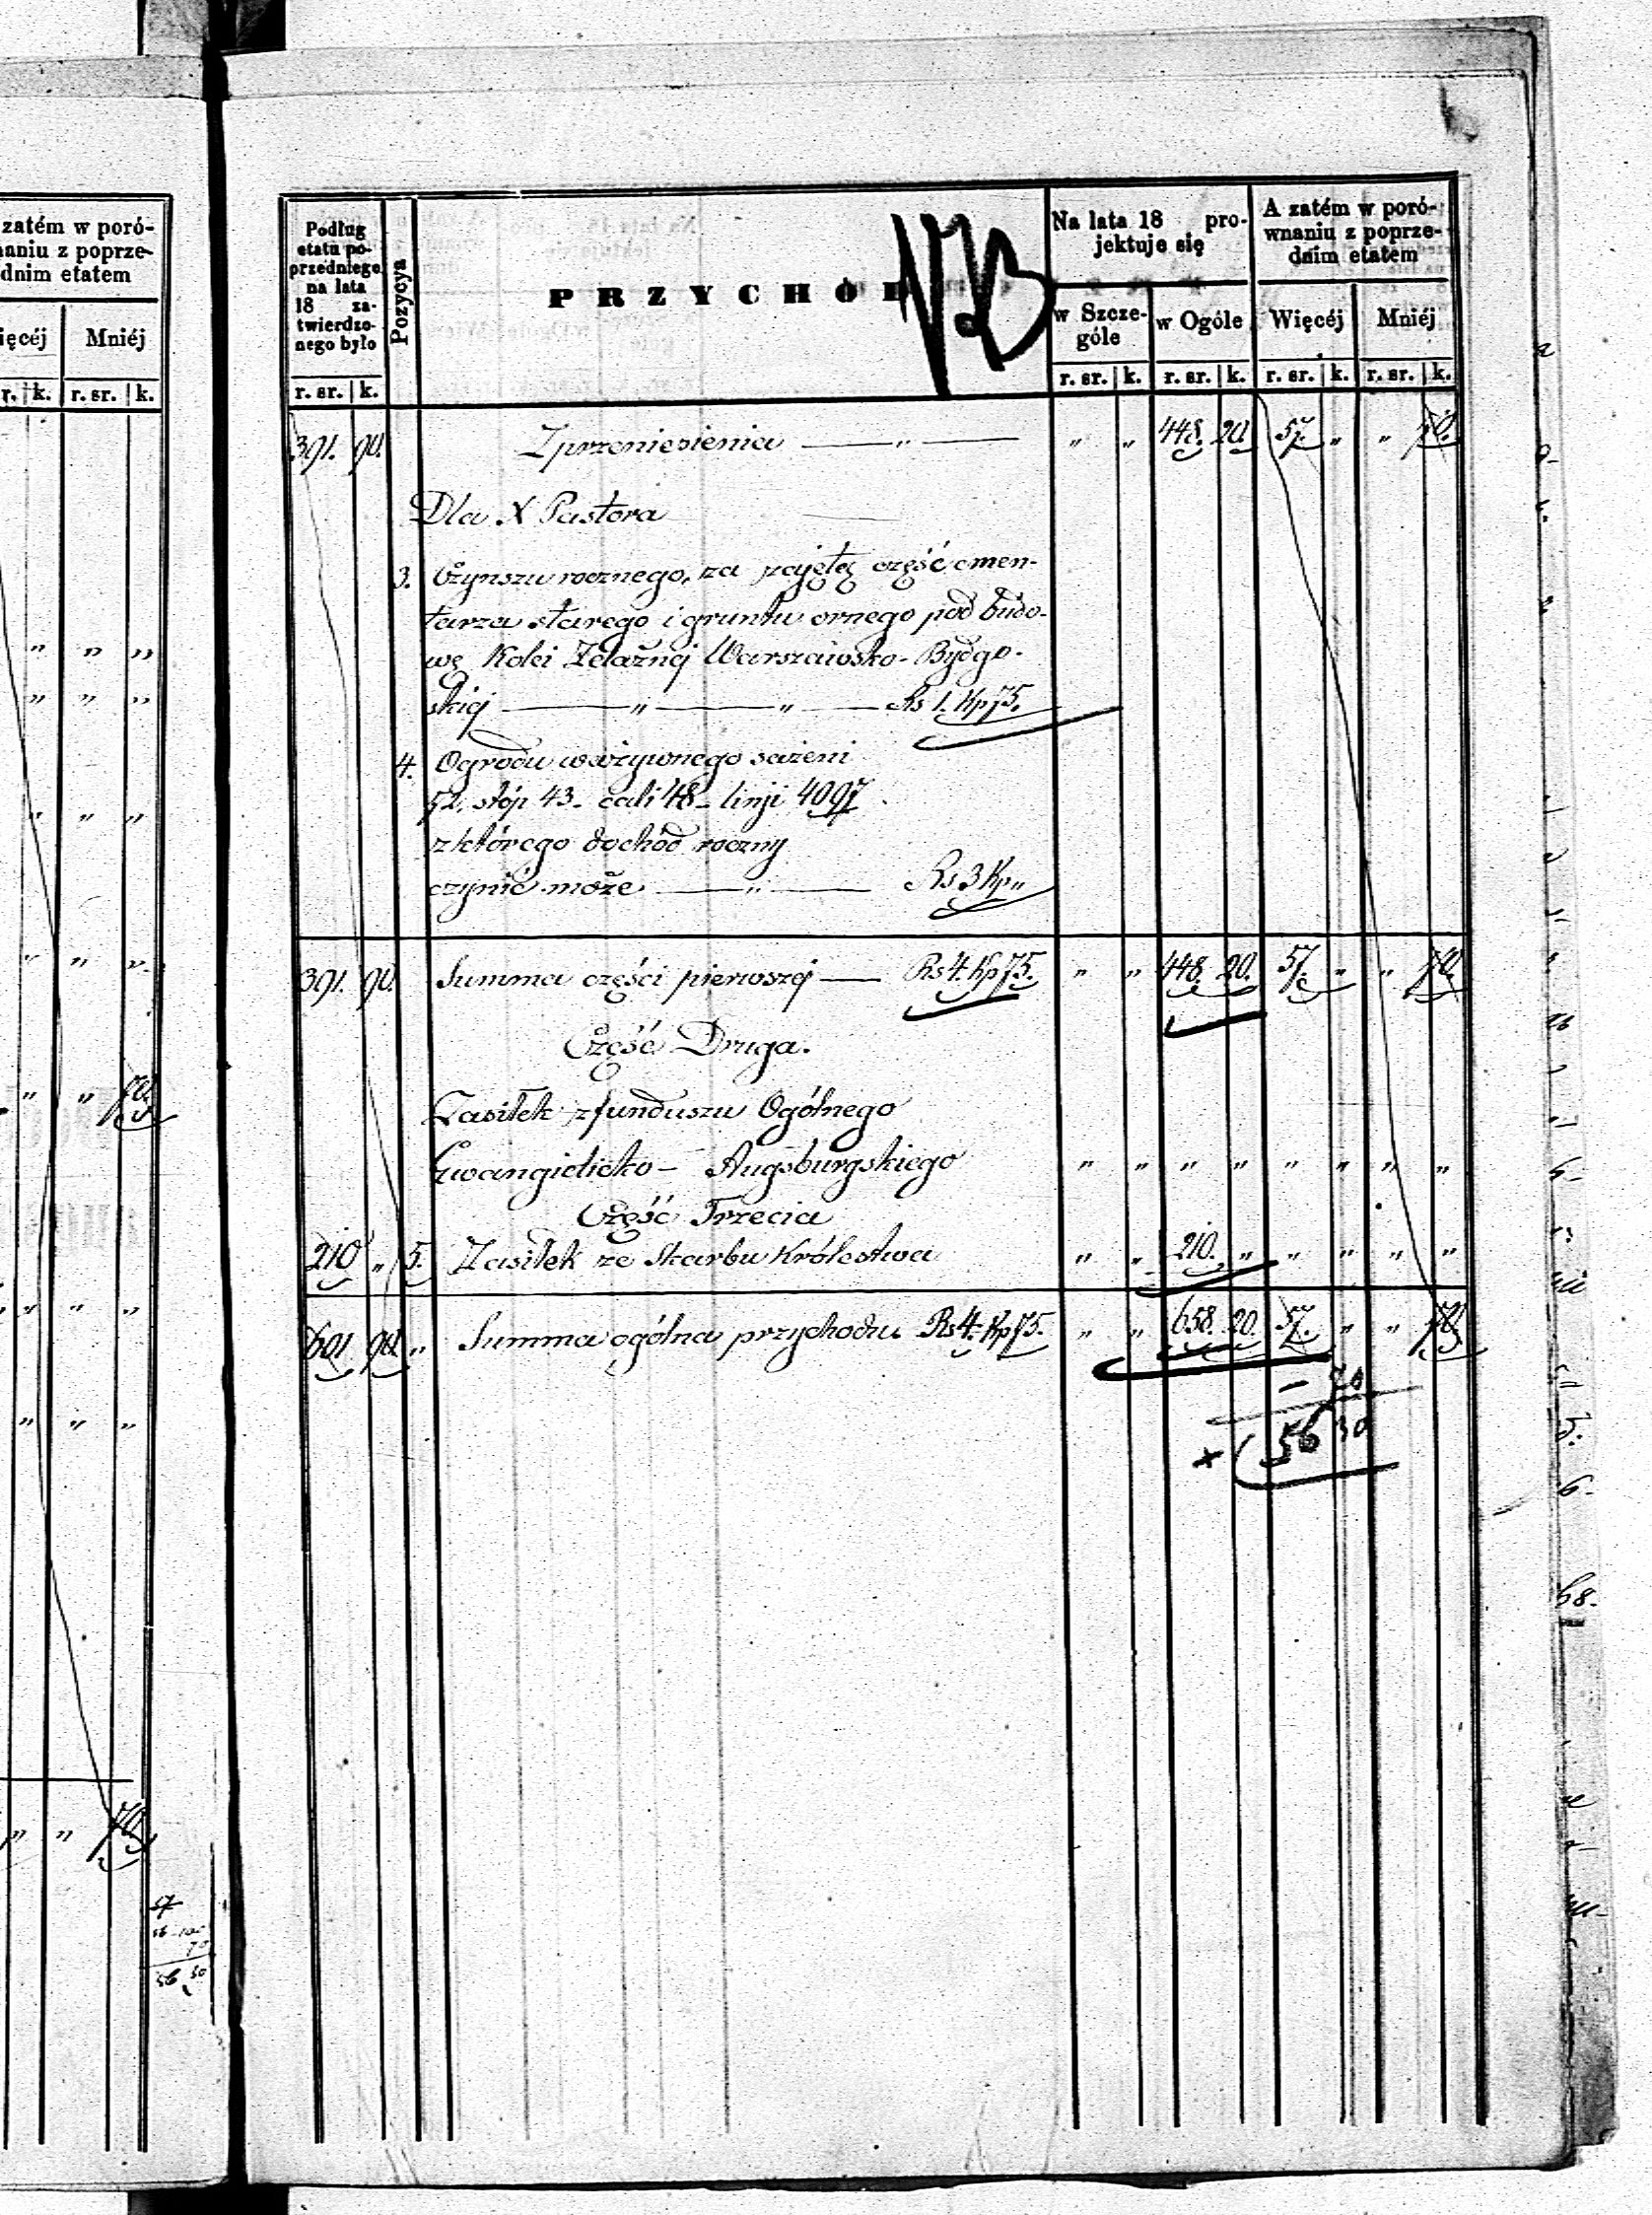 zatém w poró-
naniu z poprze-
dnim etatem
ięcéj Mniéj
r. k. r. sr. k.
" " "
" " "
" " "
" " "
" " 70.
" " "
" " "
" " 70.
57
56 100
70
56 30
Podług
etatu po-
przedniego
na lata
18 za-
twierdzo-
nego było
r. sr. k.
Pozycya
PRZYCHÓD
Na lata 18 pro-
jektuje się
w Szcze-
góle
w Ogóle
r. sr. k. r. sr. k.
A zatém w poró-
wnaniu z poprze-
dnim etatem
Więcéj Mniéj
r. sr. k. r. sr. k.
391. 90. Z przeniesienia — " — " " 448. 20. 57. " " 70.
Dla X Pastora
3. Czynszu rocznego, za zajętą część cmen-
tarza starego i gruntu ornego pod budo-
wę Kolei Żelaznéj Warszawsko-Bydgo-
skiéj — " — " — Rs 1. Kp 75.
4. Ogrodu warzywnego sażeni
52. stóp 43 - cali 48 - linji 4097
z którego dochód roczny
czynić może — " — Rs 3 Kp "
391. 90. Summa części pierwszéj — Rs 4. Kp 75. " " 448. 20. 57. " " 70.
Część Druga.
Zasiłek z funduszu Ogólnego
Ewangielicko - Augsburgskiego " " " " " " " "
Część Trzecia
210 " 5. Zasiłek ze Skarbu Królestwa " " 210. " " " " "
601. 90. " Summa ogólna przychodu Rs 4. Kp 75. " " 658. 20. 57. " " 70.
- 70
+ 56 30
68.